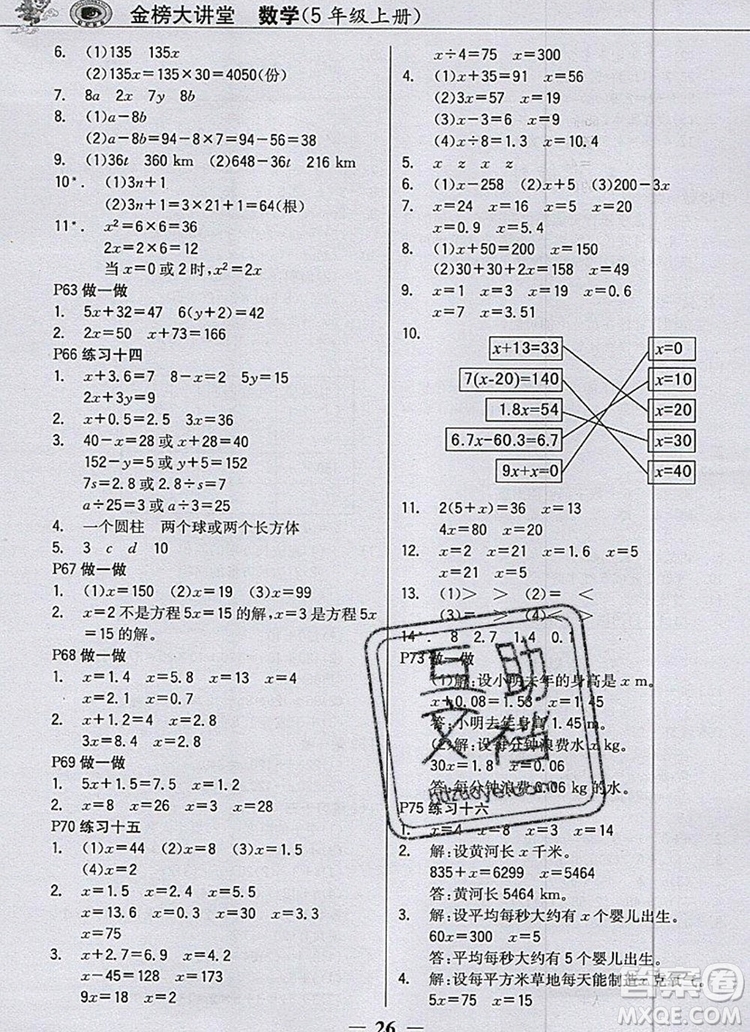 金榜大讲堂　数学(5年级上册)
6. (1)135　135x
(2)135x=135×30=4050(份)
7. 8a　2x　7y　8b
8. (1)a-8b
(2)a-8b=94-8×7=94-56=38
9. (1)36t　360 km　(2)648-36t　216 km
10*. (1)3n+1
(2)3n+1=3×21+1=64(根)
11*. x²=6×6=36
2x=2×6=12
当x=0或2时,x²=2x
P63做一做
1. 5x+32=47　6(y+2)=42
2. 2x=50　x+73=166
P66练习十四
1. x+3.6=7　8-x=2
2x+3y=9
2. x+0.5=2.5　3x=2.4
3. 40-x=28或x+28=40
152-y=60或y+60=152
7s=2.8或2.8÷s=7
a÷25=3或25×3=a
4. 一个圆柱　两个球或两个长方体
5. 3　c　d　10
P67做一做
1. (1)x=150　(2)x=19　(3)x=99
2. x=2不是方程5x=15的解,x=3是方程5x
=15的解。
P68做一做
1. x=1.4　x=5.8　x=13
x=2.1　x=0.7
2. x+1.2=4　x=2.8
3x=8.4　x=2.8
P69做一做
1. 5x+1.5=7.5　x=1.2
2. x=8　x=26　x=3　x=28
P70练习十五
1. (1)x=44　(2)x=2　(3)x=3
(4)x=2
2. x=1.5　x=33　x=4.1　x=0.7
x=75
3. x+2.7=6.9　x=4.2
x-56=117　x=173
x÷4=75　x=300
4. (1)x+35=91　x=56
(2)3x=57　x=19
(3)x-3=6　x=9
(4)x÷8=1.3　x=10.4
5. x　z　x　z
6. (1)x-258　(2)x+5　(3)200-3x
7. x=24　x=16　x=15
x=0.9　x=5.4
8. (1)x+50=200　x=150
(2)30+30+2x=158　x=49
9. x=3　x=19　x=0.6
x=7　x=3.51
10.
x+13=33　x=0
7(x-20)=140　x=10
1.8x=54　x=20
6.7x-60.3=6.7　x=30
9x+x=0　x=40
11. 2(5+x)=36　x=13
4x=80　x=20
12. x=2　x=21　x=1.6　x=5
x=21　x=1.5
13. (1)>　>　(2)=　<
(3)=　>　(4)<　<
14*. 8　2.7　1.4　0.1
P73做一做
(1)解:设小明去年的身高是x m。
x+0.08=1.53　x=1.45
答:小明去年身高1.45 m。
(2)解:设每分钟浪费水x kg。
30x=1.8　x=0.06
答:每分钟浪费0.06 kg的水。
P75练习十六
1. x=4　x=8　x=13
2. 解:设黄河长x千米。
835+x=6299　x=5464
答:黄河长5464 km。
3. 解:设平均每秒大约有x个婴儿出生。
60x=300　x=5
答:平均每秒大约有5个婴儿出生。
4. 解:设每平方米草地每天能制造x克氧气。
5x=75　x=15
26
互助
文档
huzuoye.com
答案圈
MXQE.COM